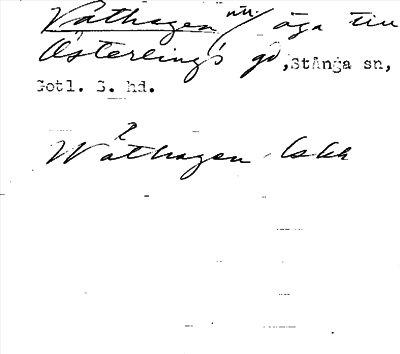 Våthagen nu/ äga till
Österlings gd, Stånga sn,
Gotl. S. hd.
Wåthagen lskk